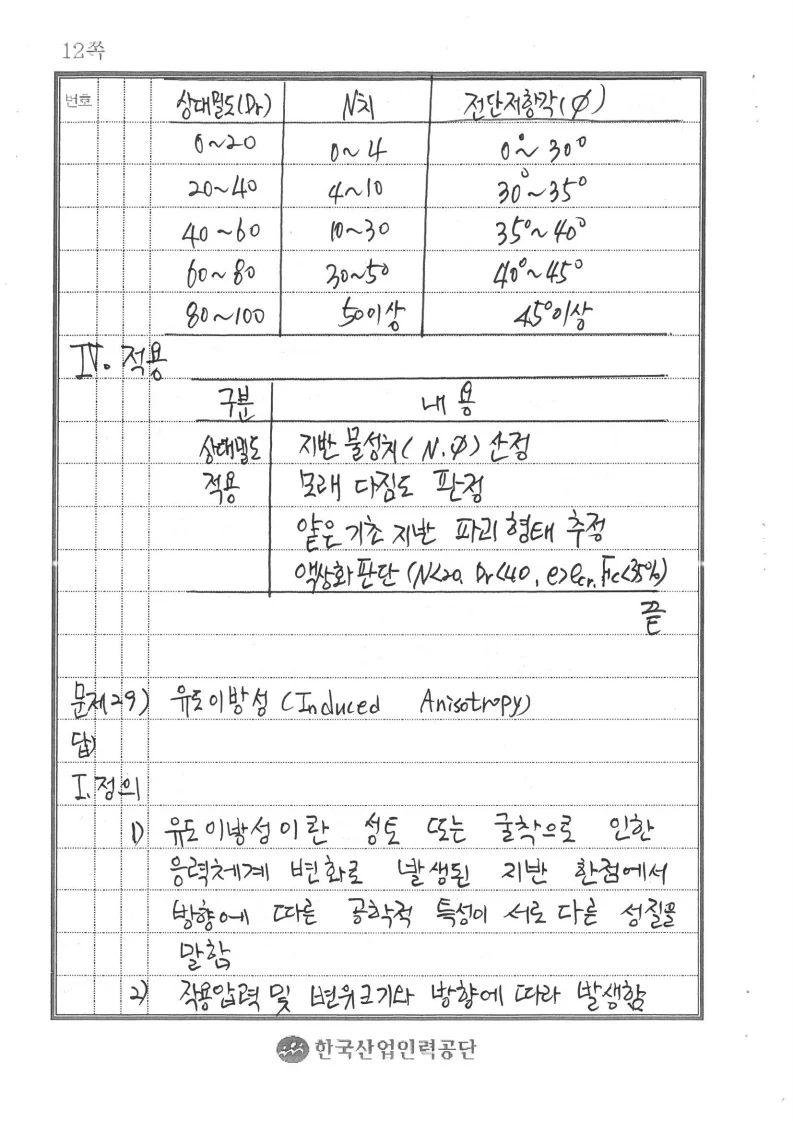 12쪽
번호 상대밀도(Dr) N치 전단저항각(Ø)
0~20 0~4 0°~30°
20~40 4~10 30°~35°
40~60 10~30 35°~40°
60~80 30~50 40°~45°
80~100 50이상 45°이상
IV. 적용
구분 내용
상대밀도 지반 물성치(N.Ø) 산정
적용 모래 다짐도 판정
얕은 기초 지반 파괴 형태 추정
액상화 판단 (N<20, Dr<40, e>ecr, Fc<35%)
끝
문제29) 유도이방성 (Induced Anisotropy)
답)
I. 정의
1) 유도이방성이란 성토 또는 굴착으로 인한
응력체계 변화로 발생된 지반 한점에서
방향에 따른 공학적 특성이 서로 다른 성질을
말함
2) 작용압력 및 변위크기와 방향에 따라 발생함
한국산업인력공단